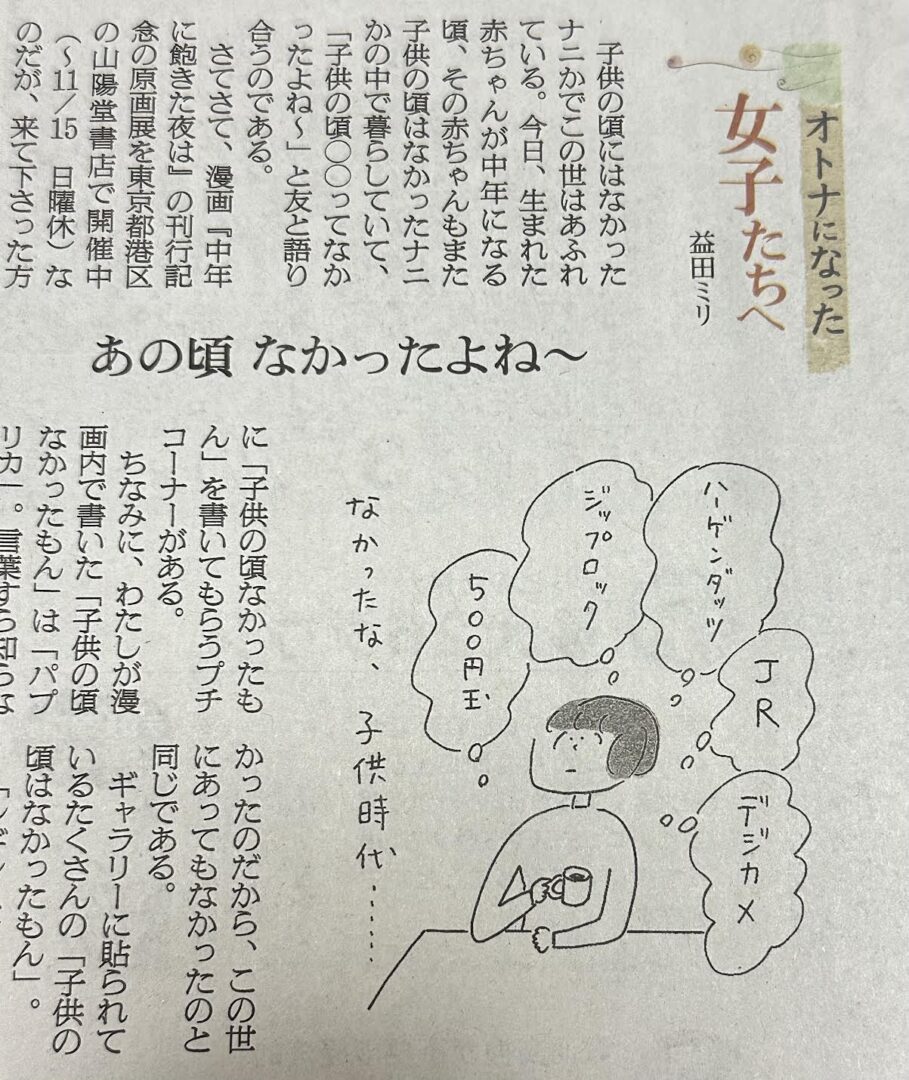 オトナになった
女子たちへ
益田ミリ
子供の頃にはなかった
ナニかでこの世はあふれ
ている。今日、生まれた
赤ちゃんが中年になる
頃、その赤ちゃんもまた
子供の頃はなかったナニ
かの中で暮らしていて、
「子供の頃〇〇ってなか
ったよね〜」と友と語り
合うのである。
さてさて、漫画『中年
に飽きた夜は』の刊行記
念の原画展を東京都港区
の山陽堂書店で開催中
（〜11／15　日曜休）な
のだが、来て下さった方
あの頃 なかったよね〜
に「子供の頃なかったも
ん」を書いてもらうプチ
コーナーがある。
ちなみに、わたしが漫
画内で書いた「子供の頃
なかったもん」は「パプ
リカ」。言葉すら知らな
かったのだから、この世
にあってもなかったのと
同じである。
ギャラリーに貼られて
いるたくさんの「子供の
頃はなかったもん」。
ハーゲンダッツ
ジップロック
500円玉
JR
デジカメ
なかったな、子供時代……